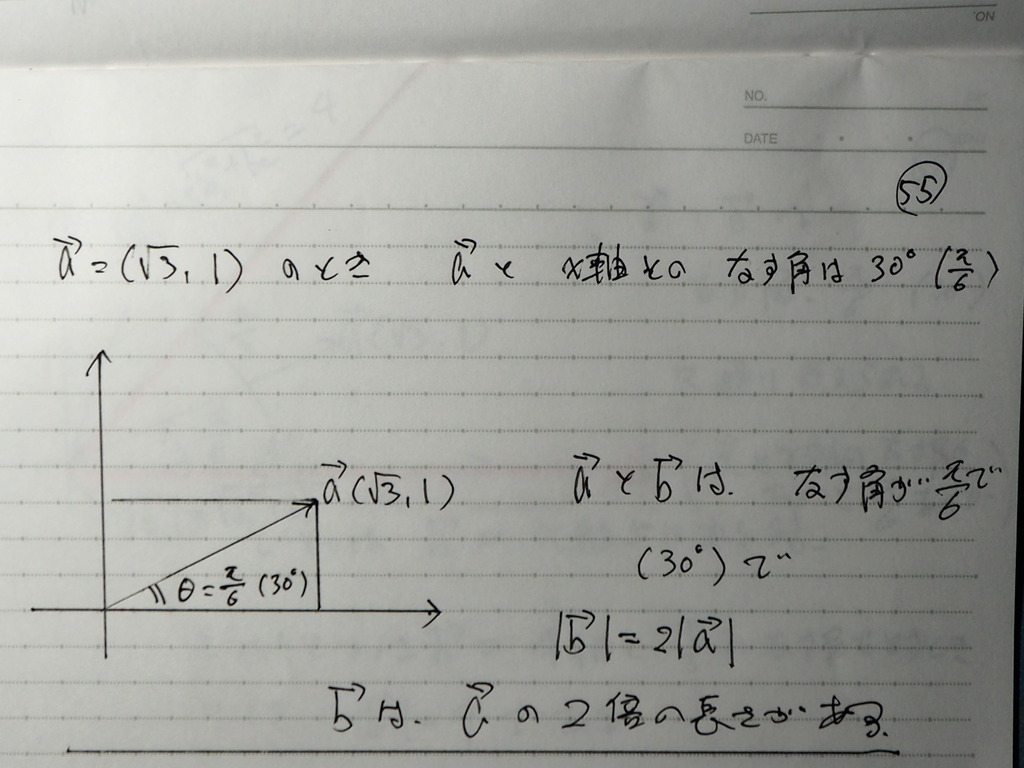 NO.
NO.
DATE
55
a→=(√3, 1) のとき a→と x軸との なす角は 30° (π/6)
a→(√3, 1)
θ=π/6 (30°)
a→とb→は. なす角が π/6で
(30°)で
|b→|=2|a→|
b→は. a→の2倍の長さがある.